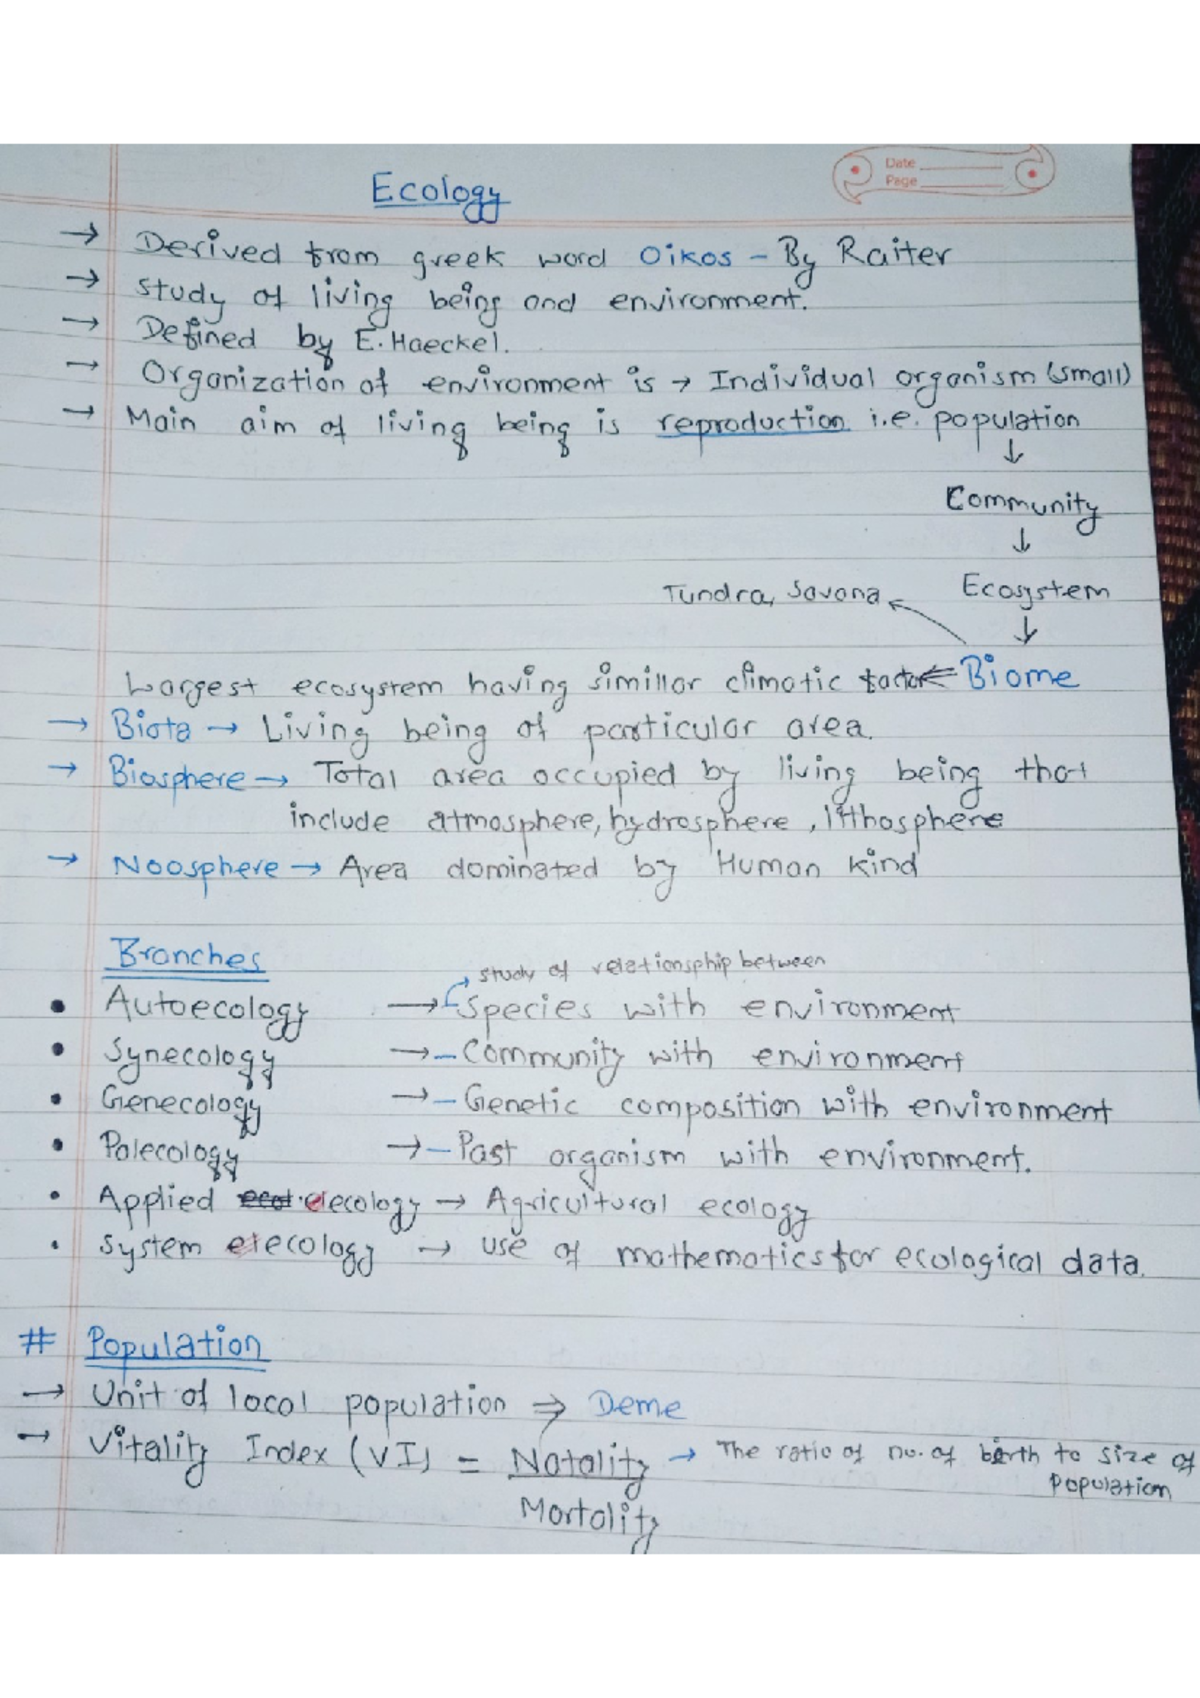 Date
Page
Ecology
→ Derived from greek word Oikos - By Raiter
→ study of living being and environment.
→ Defined by E. Haeckel.
→ Organization of environment is → Individual organism (small)
→ Main aim of living being is reproduction i.e. population
↓
Community
↓
Tundra, Savana ← Ecosystem
↓
Largest ecosystem having simillar climatic factor ← Biome
→ Biota → Living being of particular area.
→ Biosphere → Total area occupied by living being that
include atmosphere, hydrosphere, lithosphere
→ Noosphere → Area dominated by Human kind
Branches
study of relationsphip between
• Autoecology → Species with environment
• Synecology → - Community with environment
• Genecology → - Genetic composition with environment
• Palecology → - Past organism with environment.
• Applied ecology → Agricultural ecology
• System ecology → use of mathematics for ecological data.
# Population
→ Unit of local population ⇒ Deme
→ Vitality Index (VI) = Natality → The ratio of no. of birth to size of
Population
Mortality